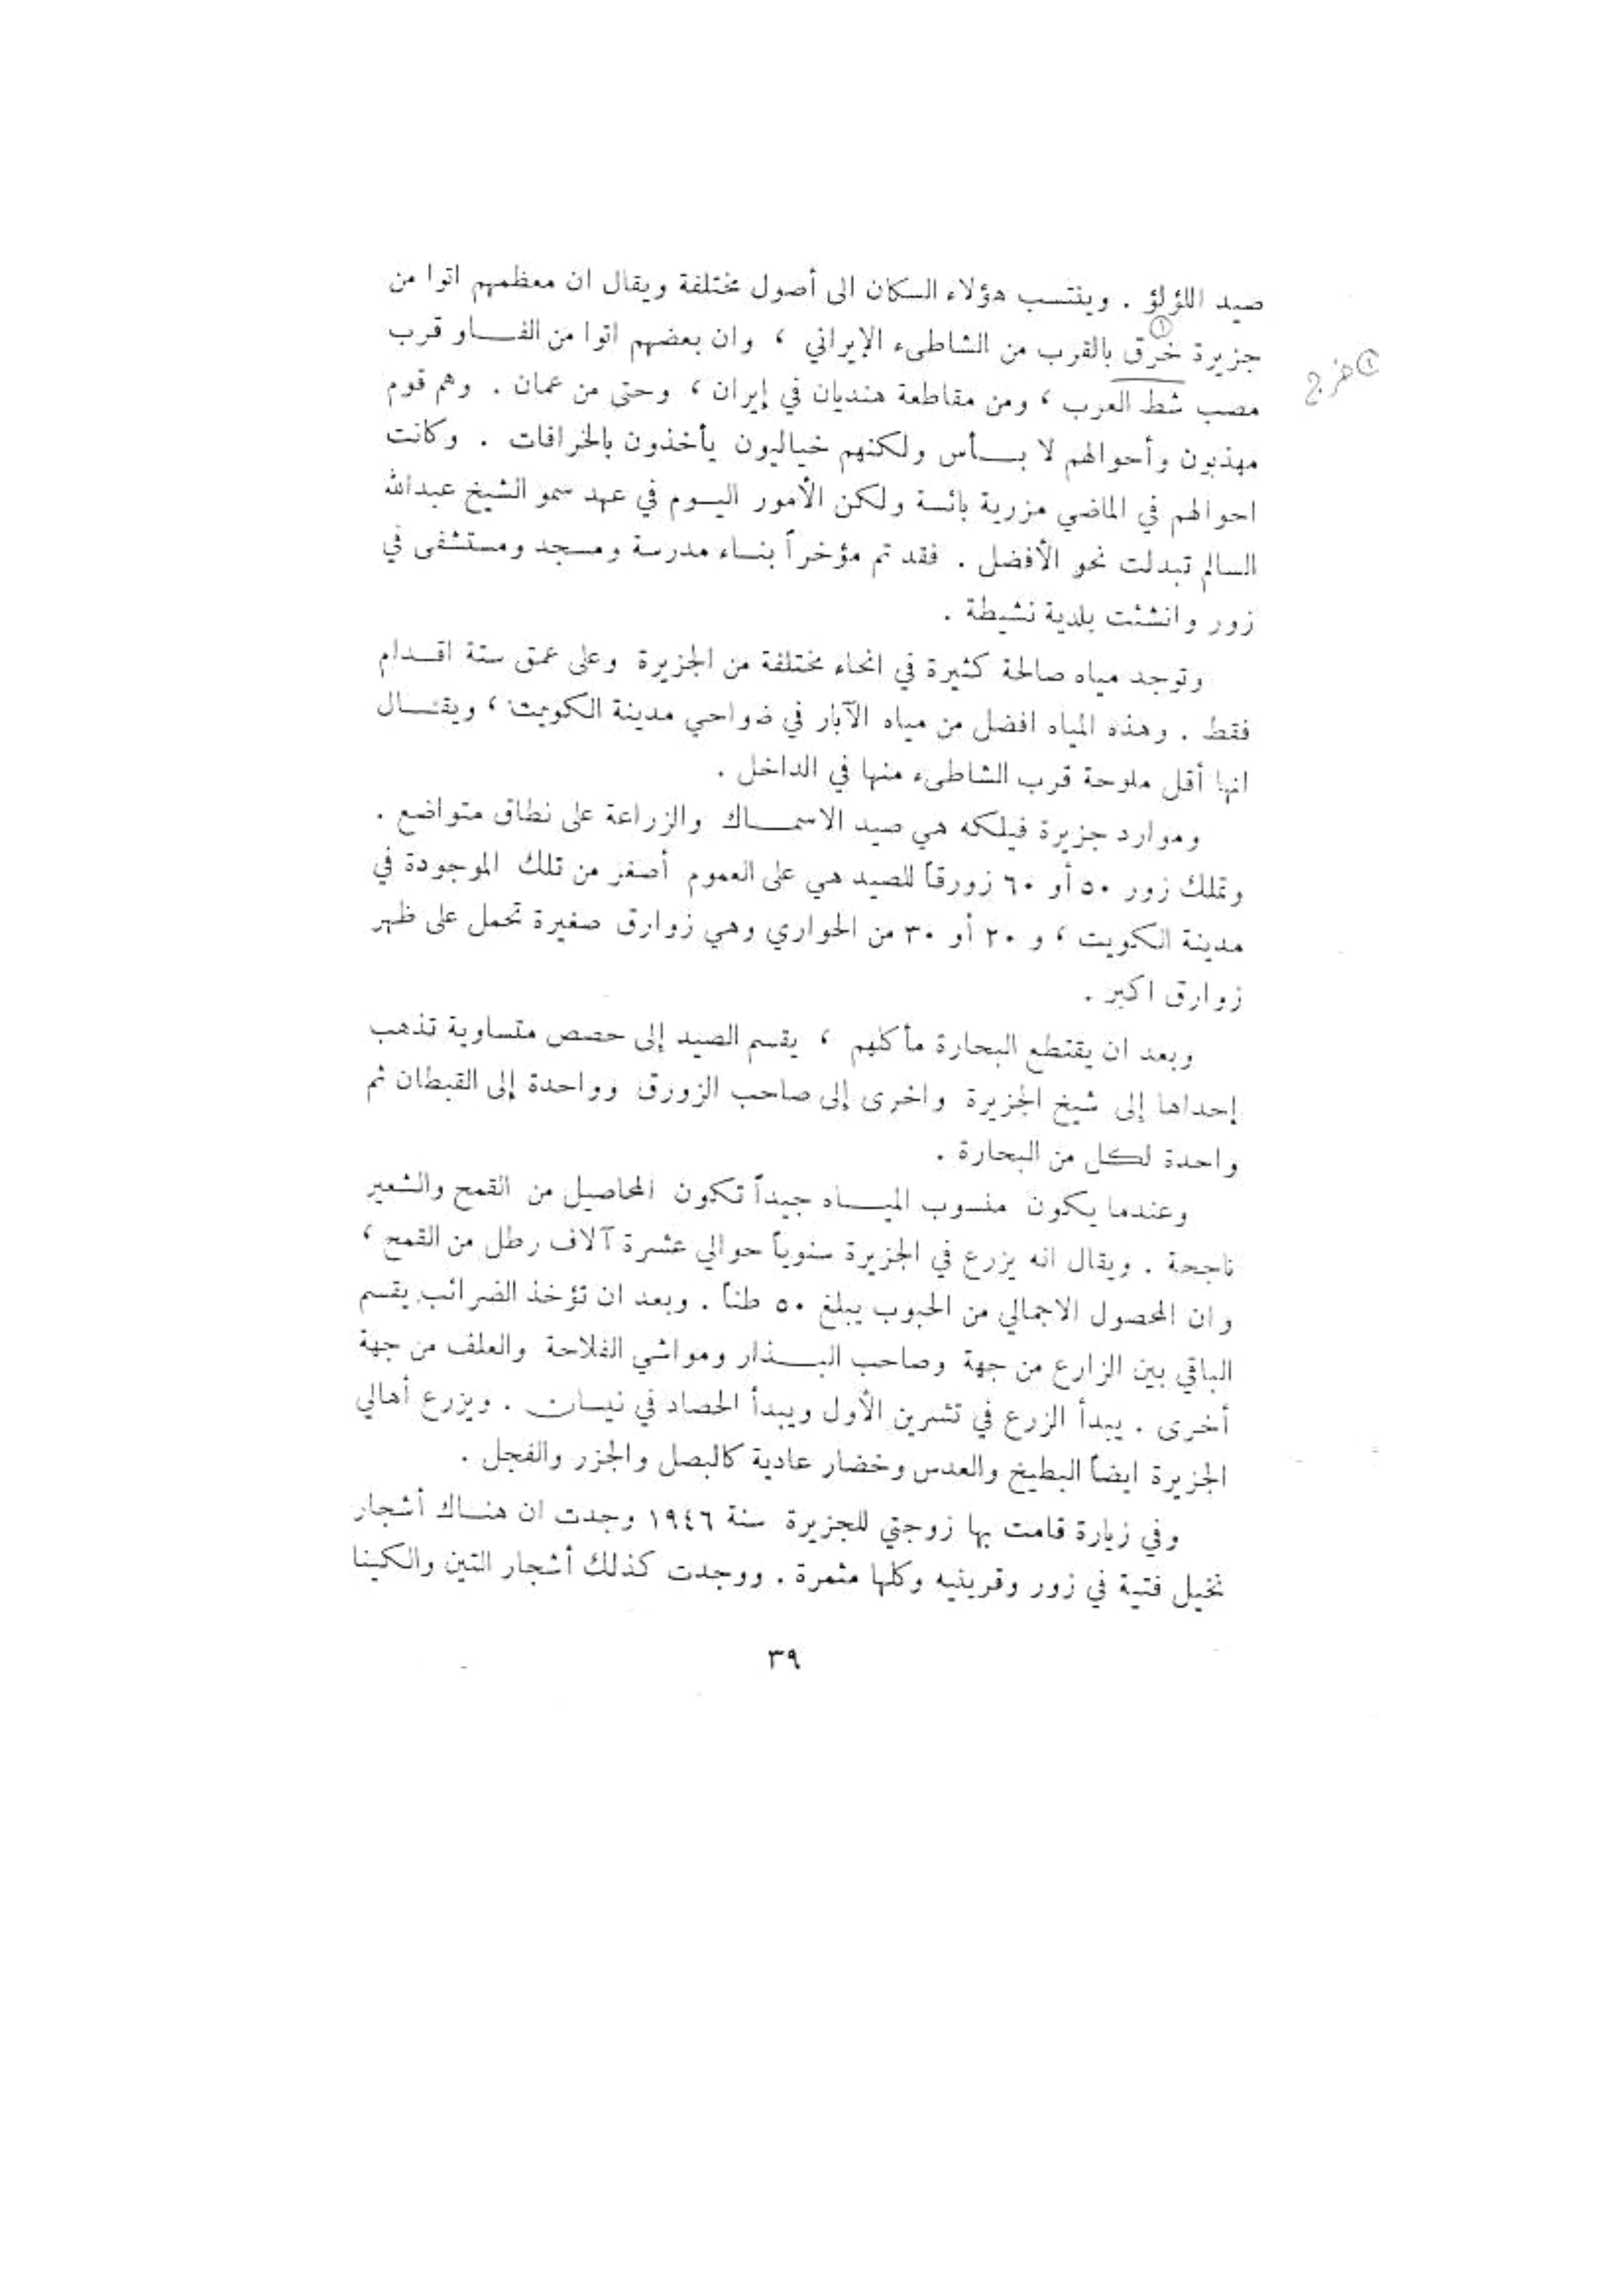 صيد اللؤلؤ . وينتسب هؤلاء السكان الى أصول مختلفة ويقال ان معظمهم اتوا من
①
جزيرة خرق بالقرب من الشاطىء الإيراني ، وان بعضهم اتوا من الفـــاو قرب
① خرج
مصب شط العرب ، ومن مقاطعة هنديان في إيران ، وحتى من عمان . وهم قوم
مهذبون وأحوالهم لا بـــأس ولكنهم خياليون يأخذون بالخرافات . وكانت
احوالهم في الماضي مزرية بائسة ولكن الأمور اليـوم في عهد سمو الشيخ عبدالله
السالم تبدلت نحو الأفضل . فقد تم مؤخراً بنـاء مدرسة ومسجد ومستشفى في
زور وانشئت بلدية نشيطة .
وتوجد مياه صالحة كثيرة في انحاء مختلفة من الجزيرة وعلى عمق ستة اقـدام
فقط . وهذه المياه افضل من مياه الآبار في ضواحي مدينة الكويت ، ويقــال
انها أقل ملوحة قرب الشاطىء منها في الداخل .
وموارد جزيرة فيلكه هي صيد الاسمـــاك والزراعة على نطاق متواضع .
وتملك زور ٥٠ أو ٦٠ زورقاً للصيد هي على العموم أصغر من تلك الموجودة في
مدينة الكويت ، و ٢٠ أو ٣٠ من الحواري وهي زوارق صغيرة تحمل على ظهر
زوارق اكبر .
وبعد ان يقتطع البحارة مأكلهم ، يقسم الصيد إلى حصص متساوية تذهب
إحداها إلى شيخ الجزيرة واخرى إلى صاحب الزورق وواحدة إلى القبطان ثم
واحدة لكل من البحارة .
وعندما يكون منسوب الميـــاه جيداً تكون المحاصيل من القمح والشعير
ناجحة . ويقال انه يزرع في الجزيرة سنوياً حوالي عشرة آلاف رطل من القمح ،
وان المحصول الاجمالي من الحبوب يبلغ ٥٠ طناً . وبعد ان تؤخذ الضرائب يقسم
الباقي بين الزارع من جهة وصاحب البـــذار ومواشي الفلاحة والعلف من جهة
أخرى . يبدأ الزرع في تشرين الأول ويبدأ الحصاد في نيسان . ويزرع أهالي
الجزيرة ايضاً البطيخ والعدس وخضار عادية كالبصل والجزر والفجل .
وفي زيارة قامت بها زوجتي للجزيرة سنة ١٩٤٦ وجدت ان هنـاك أشجار
نخيل فتية في زور وقرينيه وكلها مثمرة . ووجدت كذلك أشجار التين والكينا
٣٩